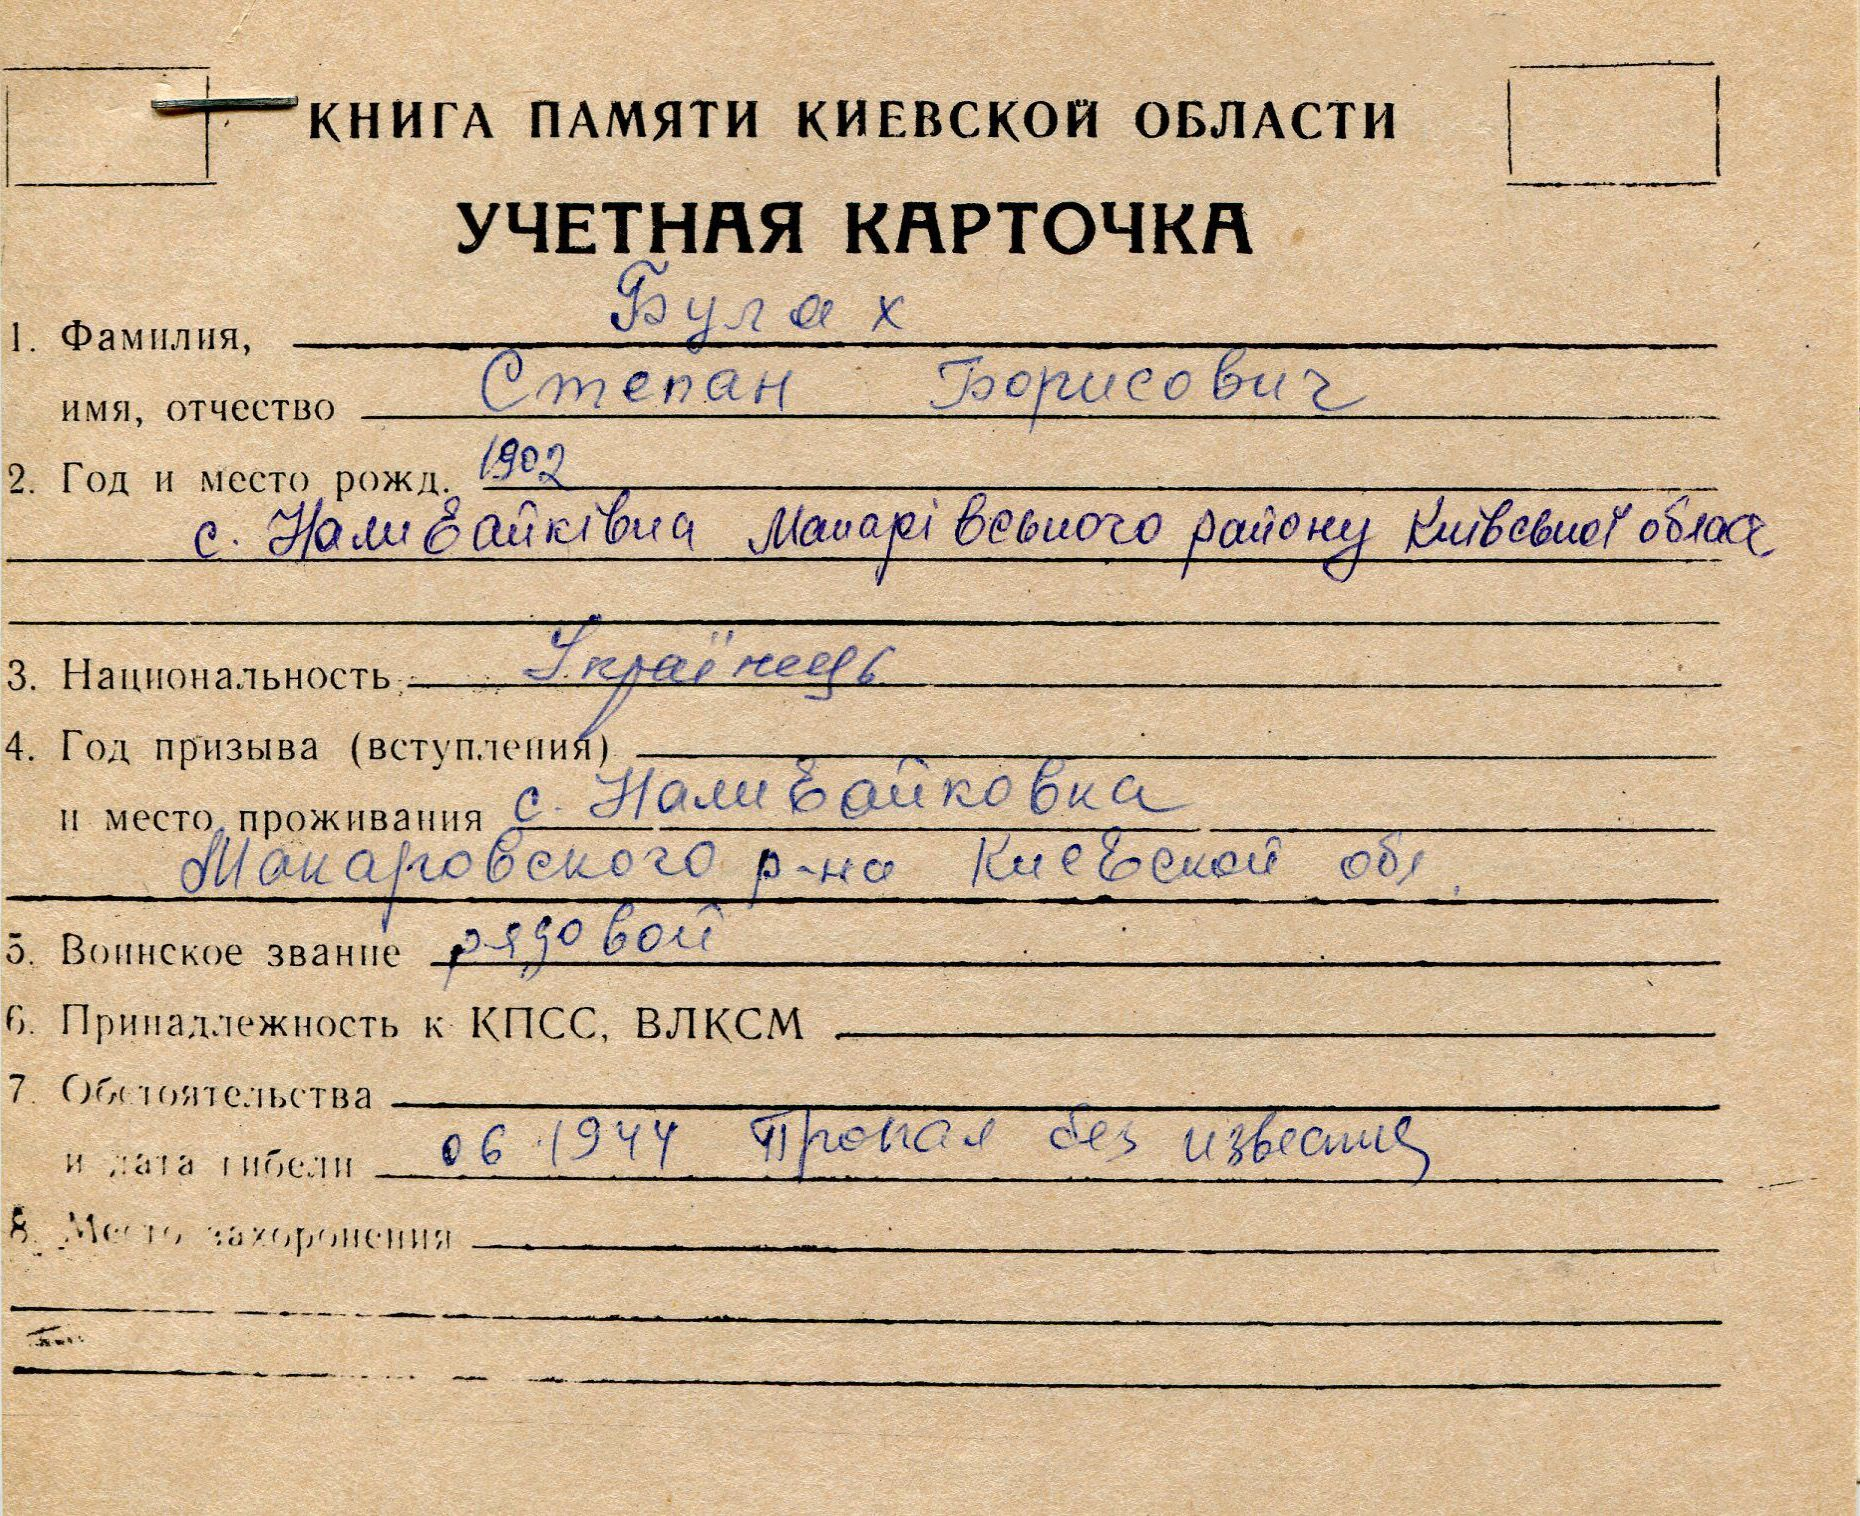 КНИГА ПАМЯТИ КИЕВСКОЙ ОБЛАСТИ
УЧЕТНАЯ КАРТОЧКА
1. Фамилия, Булах
имя, отчество Степан Борисович
2. Год и место рожд. 1902
с. Наливайківка Макарівського району Київської област
3. Национальность Українець
4. Год призыва (вступления)
и место проживания с. Наливайковка
Макаровского р-на Киевской обл.
5. Воинское звание рядовой
6. Принадлежность к КПСС, ВЛКСМ
7. Обстоятельства
и дата гибели 06.1944 Пропал без известия
8. Место захоронения